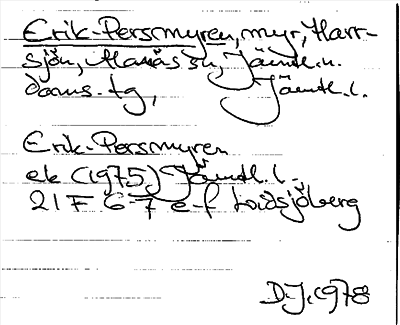 Erik-Persmyren, myr, Harr-
sjön, Alanäs sn, Jämtl. n.
doms. tg, Jämtl. l.
Erik-Persmyren
ek (1975) Jämtl. l.
21F 67 e-f Lövsjöberg
D.J. 1978